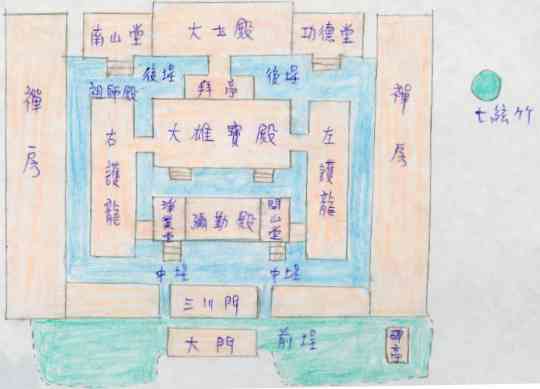 南山堂
大士殿
功德堂
後埕
後埕
祖師殿
拜亭
禪房
禪房
七絃竹
大雄寶殿
右護龍
左護龍
彌勒殿
開山堂
中埕
中埕
三川門
大門
前埕
碑亭